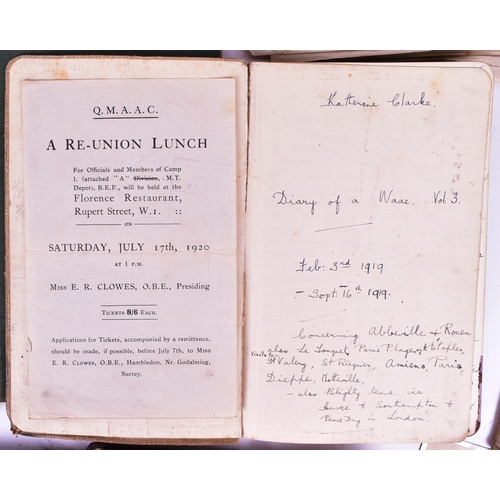 Q.M.A.A.C.
A RE-UNION LUNCH
For Officials and Members of Camp
I. (attached "A" Division, M.T.
Depot), B.E.F., will be held at the
Florence Restaurant,
Rupert Street, W.1. ::
ON
SATURDAY, JULY 17th, 1920
AT 1 P.M.
MISS E. R. CLOWES, O.B.E., Presiding
TICKETS 8/6 EACH.
Applications for Tickets, accompanied by a remittance,
should be made, if possible, before July 7th, to MISS
E. R. CLOWES, O.B.E., Hambledon, Nr. Godalming,
Surrey.
Katherine Clarke.
Diary of a Waac. Vol: 3.
Feb: 3rd 1919
- Sept: 16th 1919.
Concerning Abbeville & Rouen
also Le Touquet, Paris Plage, Etaples,
visits to St Valery, St Riquier, Amiens, Paris,
Dieppe, Motteville,
- also Blighty leave via
Havre & Southampton to
Peace Day in London.